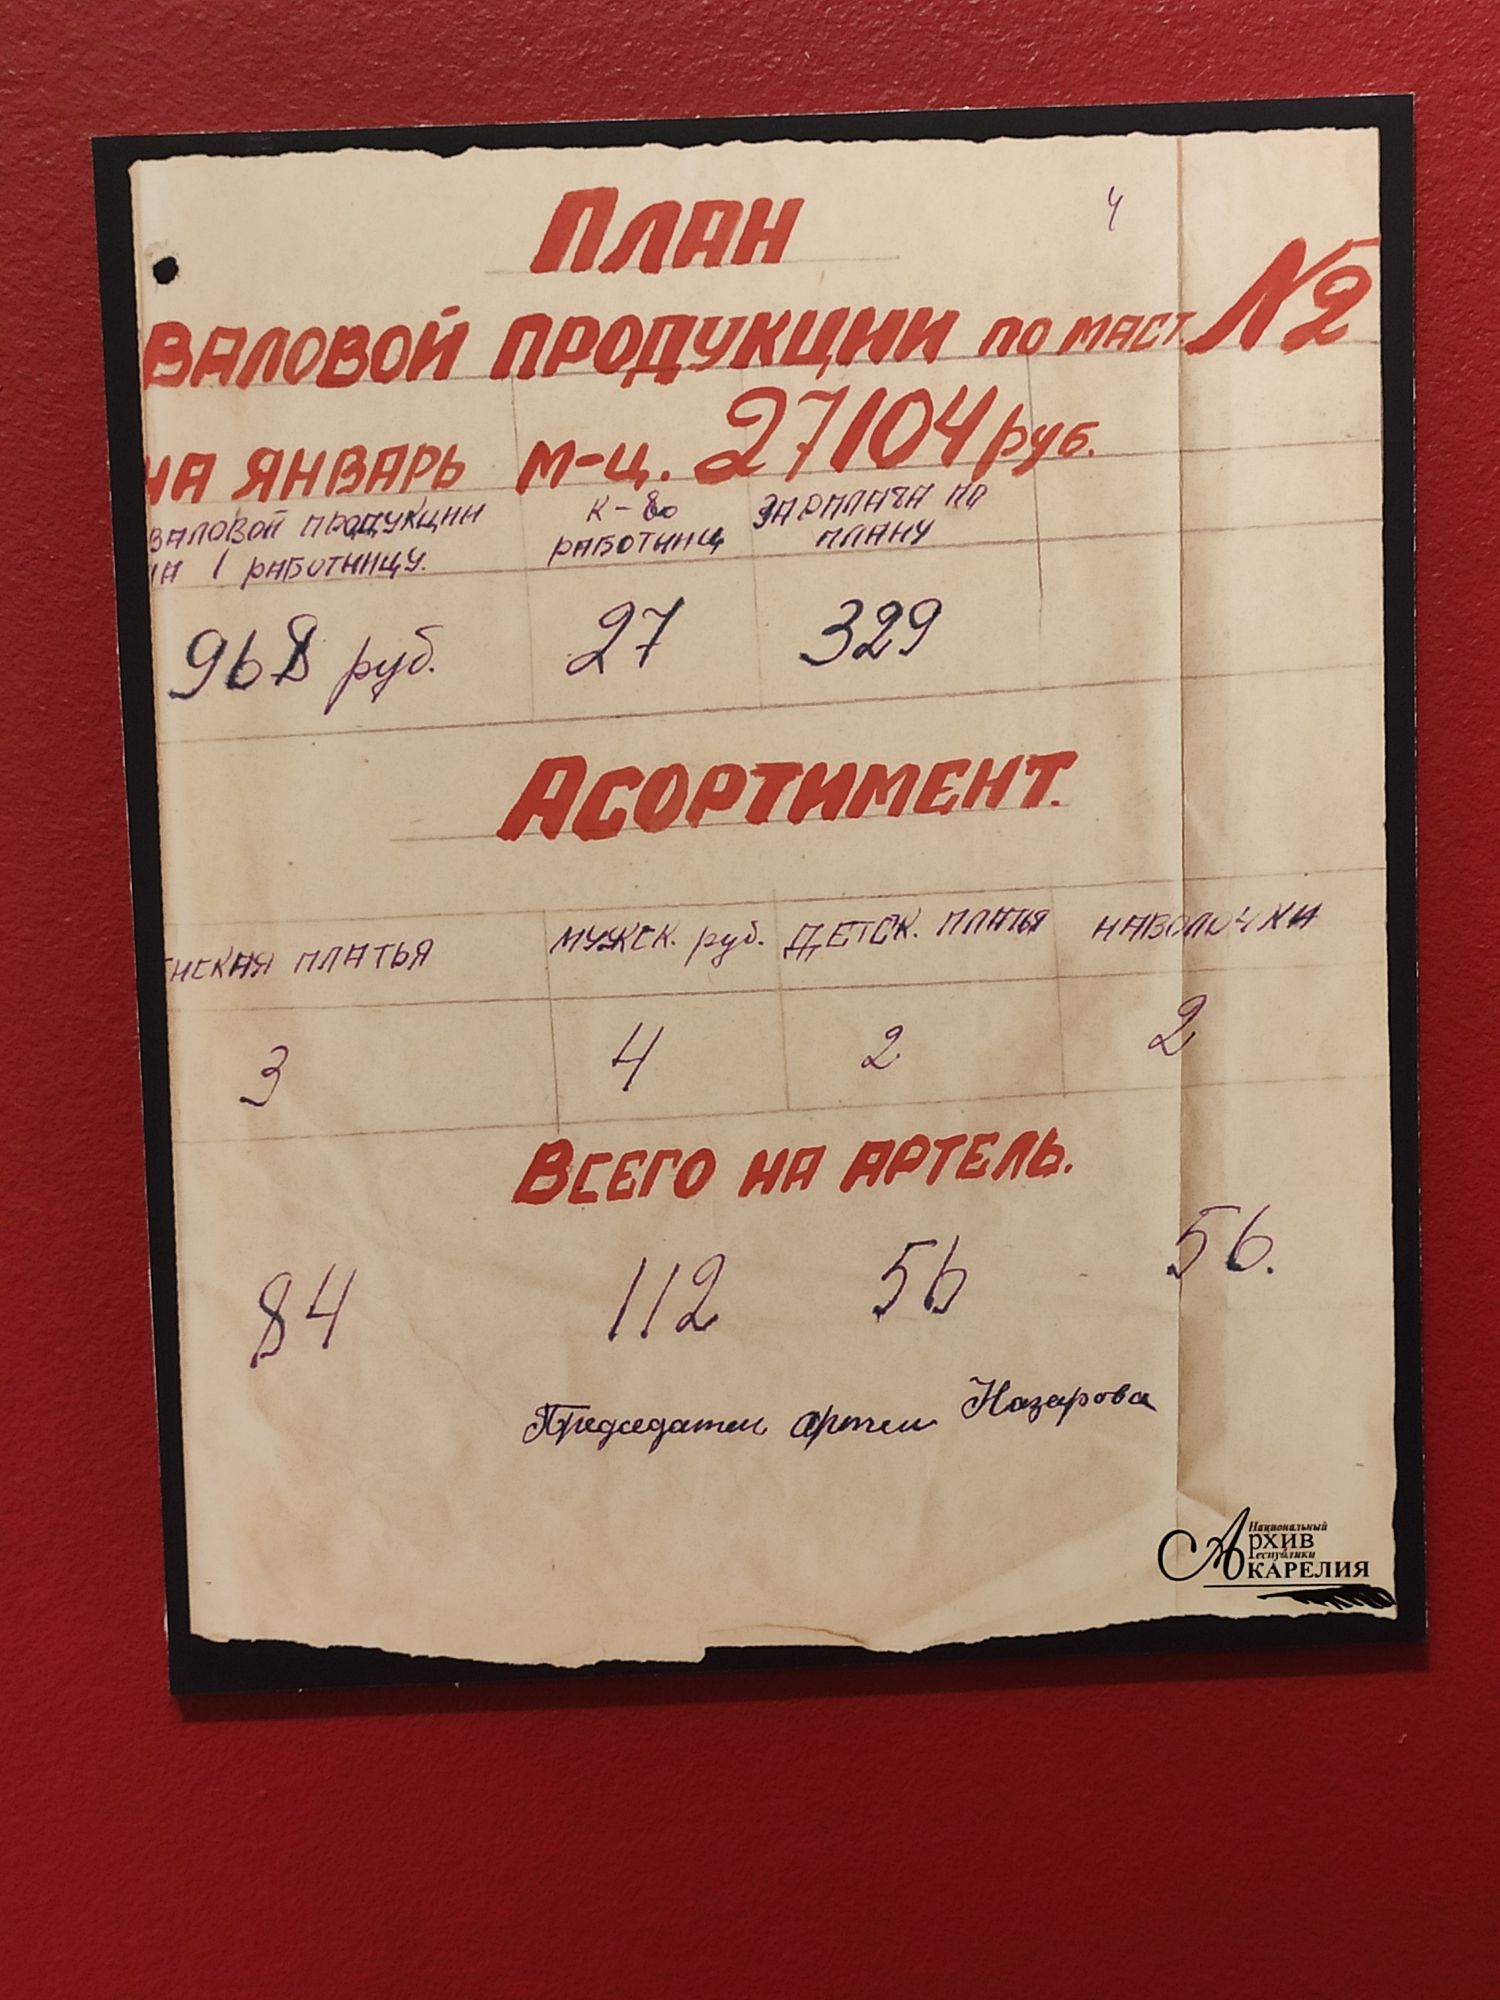 План
4
валовой продукции по маст. №2
на январь м-ц. 27104 руб.
валовой продукции
на 1 работницу.
к-во
работниц
зарплата по
плану
968 руб.
27
329
Асортимент.
нская платья
мужск. руб.
детск. платья
наволочки
3
4
2
2
Всего на артель.
84
112
56
56.
Председатель артели Назарова
Национальный
Архив
Республики
Карелия